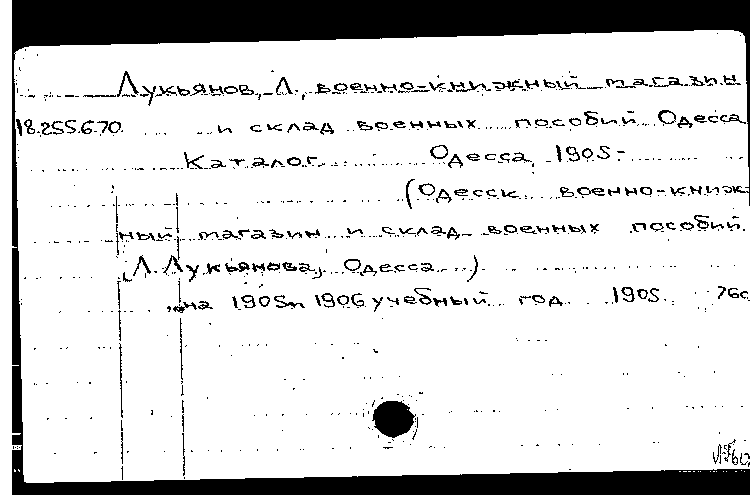 Лукьянов, Л., военно-книжный магазин
18.255.6.70. и склад военных пособий Одесса
Каталог. Одесса, 1905-
(Одесск. военно-книж-
ный магазин и склад военных пособий
Л. Лукьянова, Одесса)
на 1905/1906 учебный год. 1905. 76с